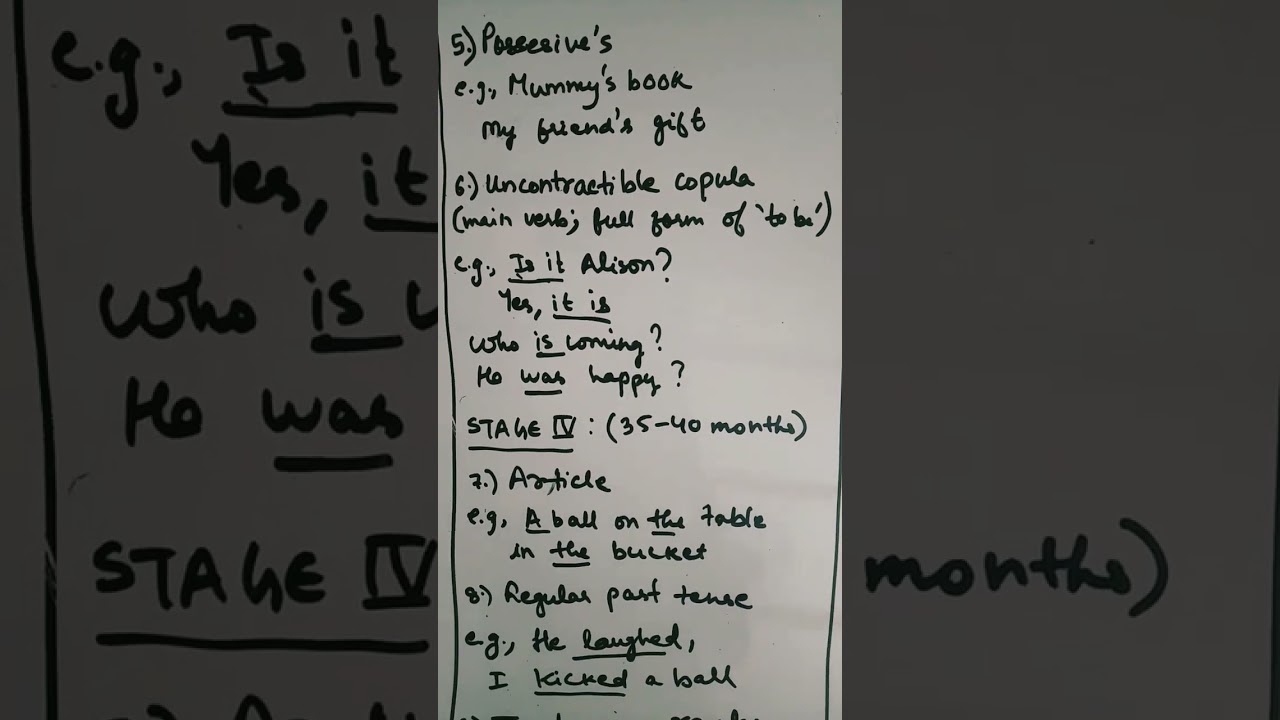 5.) Possesive's
e.g., Mummy's book
My friend's gift
6.) Uncontractible copula
(main verb; full form of 'to be')
e.g., Is it Alison?
Yes, it is
Who is coming?
He was happy?
STAGE IV : (35-40 months)
7.) Article
e.g, A ball on the table
in the bucket
8.) Regular past tense
e.g., He laughed,
I kicked a ball